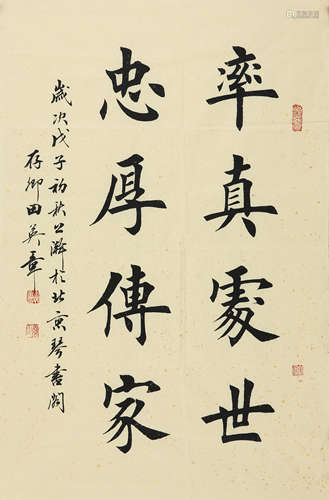 率真處世
忠厚傳家
歲次戊子初秋公瀞於北京琴書閣
存卿田英章